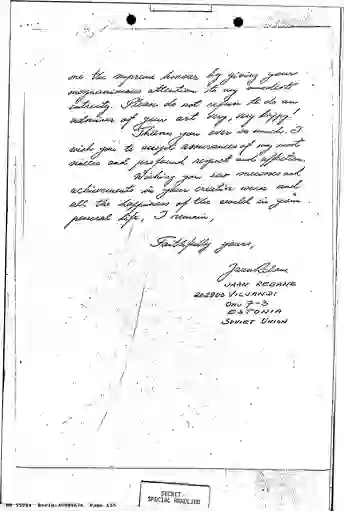 me the supreme honour by giving your
magnanimous attention to my modest
entreaty. Please do not refuse to do an
admirer of your art very, very happy!
Thank you ever so much. I
wish you to accept assurances of my most
sincere and profound regard and affection.
Wishing you new successes and
achievements in your creative work and
all the happiness of the world in your
personal life, I remain,
Faithfully yours,
JAAN REBANE
202900 VILJANDI
7-3
ESTONIA
SOVIET UNION
SECRET
SPECIAL HANDLING
Page